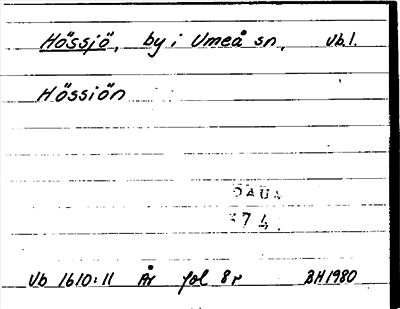 Hössjö, by i Umeå sn. Vb.l.
Hössiön
OAUA
374
Vb 1610:11 År fol 8r BH1980